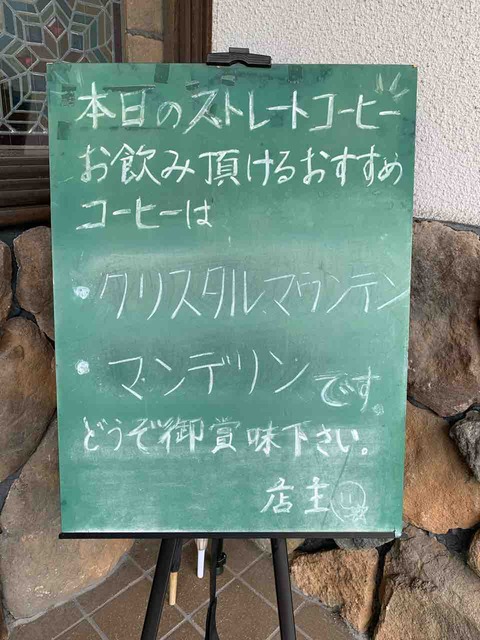 本日のストレートコーヒー
お飲み頂けるおすすめ
コーヒーは
・クリスタルマウンテン
・マンデリンです。
どうぞ御賞味下さい。
店主